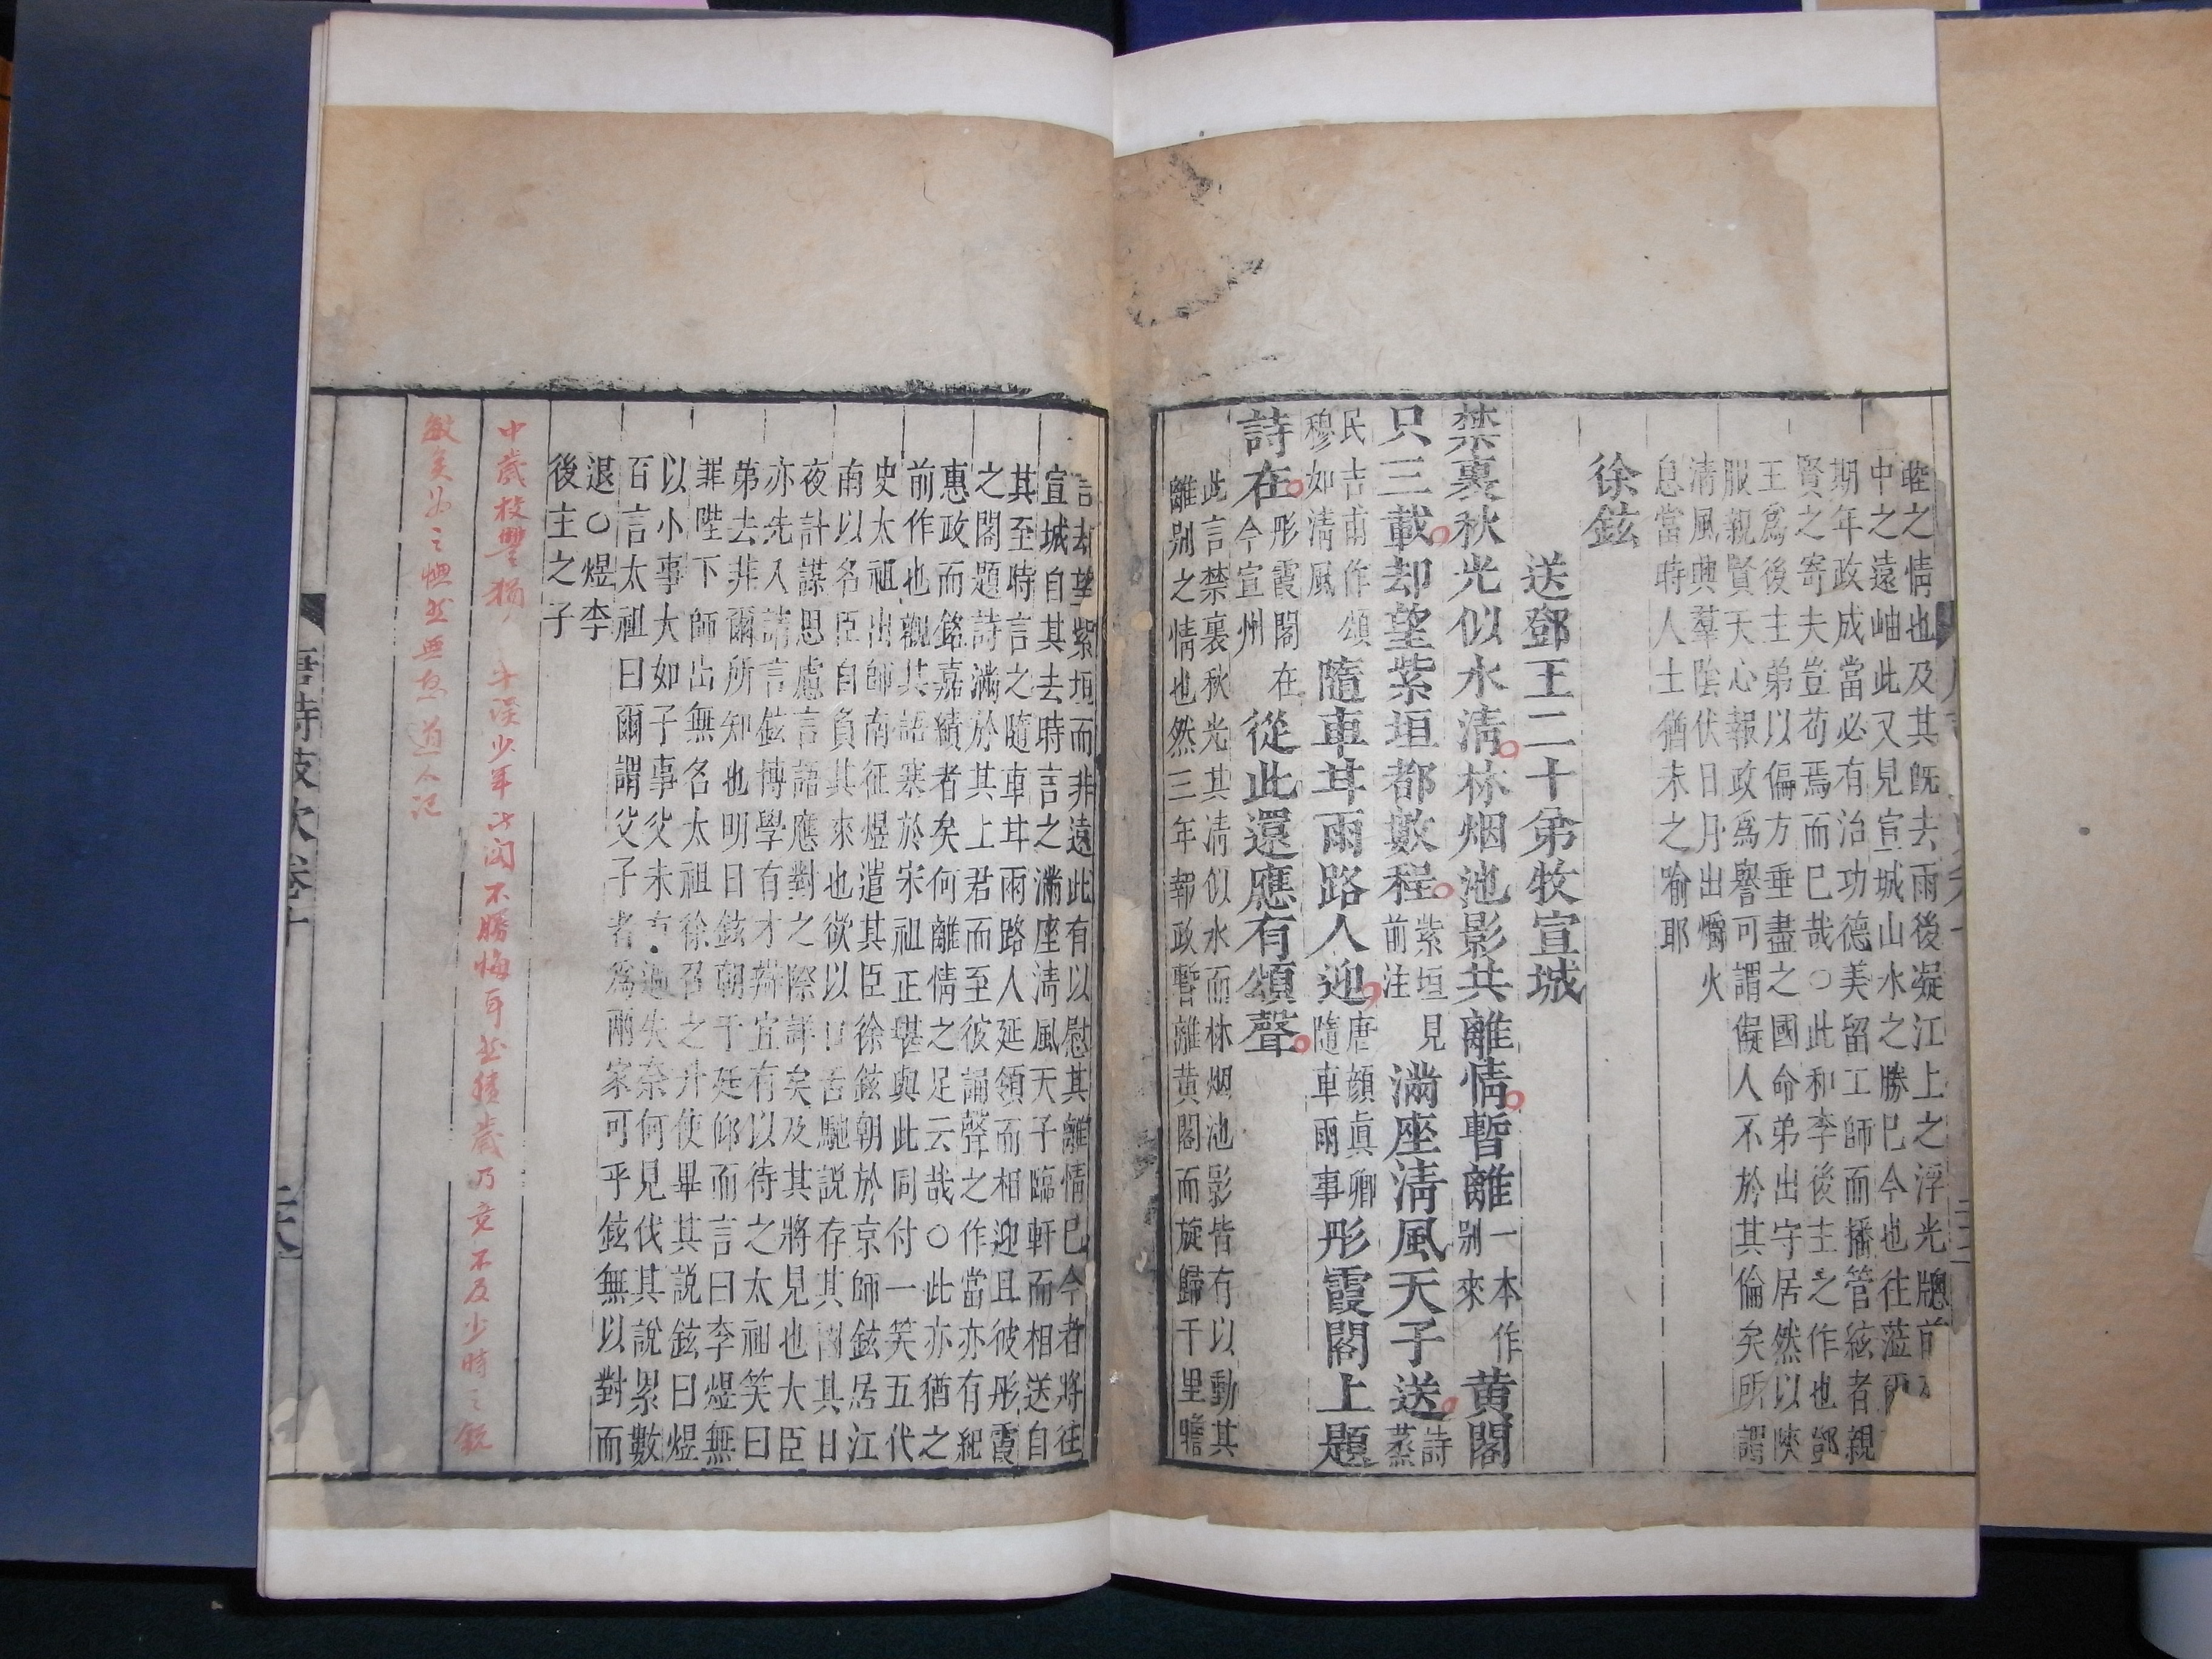 睦之情也及其旣去雨後凝江上之浮光牕前
中之遠岫此又見宣城山水之勝巳今也往蒞
期年政成當必有治功德美留工師而播管絃者親
賢之寄夫豈苟焉而巳哉○此和李後主之作也鄧
王爲後主弟以偏方垂盡之國命弟出守居然以陜
服親賢天心報政爲譽可謂儗人不於其倫矣所謂
清風興羣陰伏日月出爝火
息當時人士猶未之喻耶
徐鉉
送鄧王二十弟牧宣城
禁裏秋光似水清林烟池影共離情暫離一本作别來黄閣
只三載却望紫垣都數程紫垣見前注滿座清風天子送詩蒸
民吉甫作頌穆如清風隨車甘雨路人迎唐顔眞卿隨車雨事彤霞閣上題
詩在彤霞閣在今宣州從此還應有頌聲
此言禁裏秋光其清似水而林烟池影皆有以動其
離别之情也然三年報政暫離黄閣而旋歸千里瞻
言却望紫垣而非遠此有以慰其離情巳今者將往
宣城自其去時言之滿座清風天子臨軒而相送自
其至時言之隨車甘雨路人延領而相迎且彼彤霞
之閣題詩滿於其上君而至彼誦聲之作當亦有紀
惠政而銘嘉績者矣何離情之足云哉○此亦猶之
前作也觀其語塞於宋祖正堪與此同付一笑五代
史太祖出師南征煜遣其臣徐鉉朝於京師鉉居江
南以名臣自負其來也欲以口舌馳説存其國其日
夜計謀思慮言語應對之際詳矣及其將見也大臣
亦先入請言鉉博學有才辯宜有以待之太祖笑曰
弟去非爾所知也明日鉉朝于廷仰而言曰李煜無
罪陛下師出無名太祖徐召之升使畢其説鉉曰煜
以小事大如子事父未有過失奈何見伐其說累數
百言太祖曰爾謂父子者爲兩家可乎鉉無以對而
退○煜李
後主之子
中歲校讐獨
少年 不勝悔耳 歲乃竟不及少時之銳
敏矣 道人記
唐詩鼓吹卷十